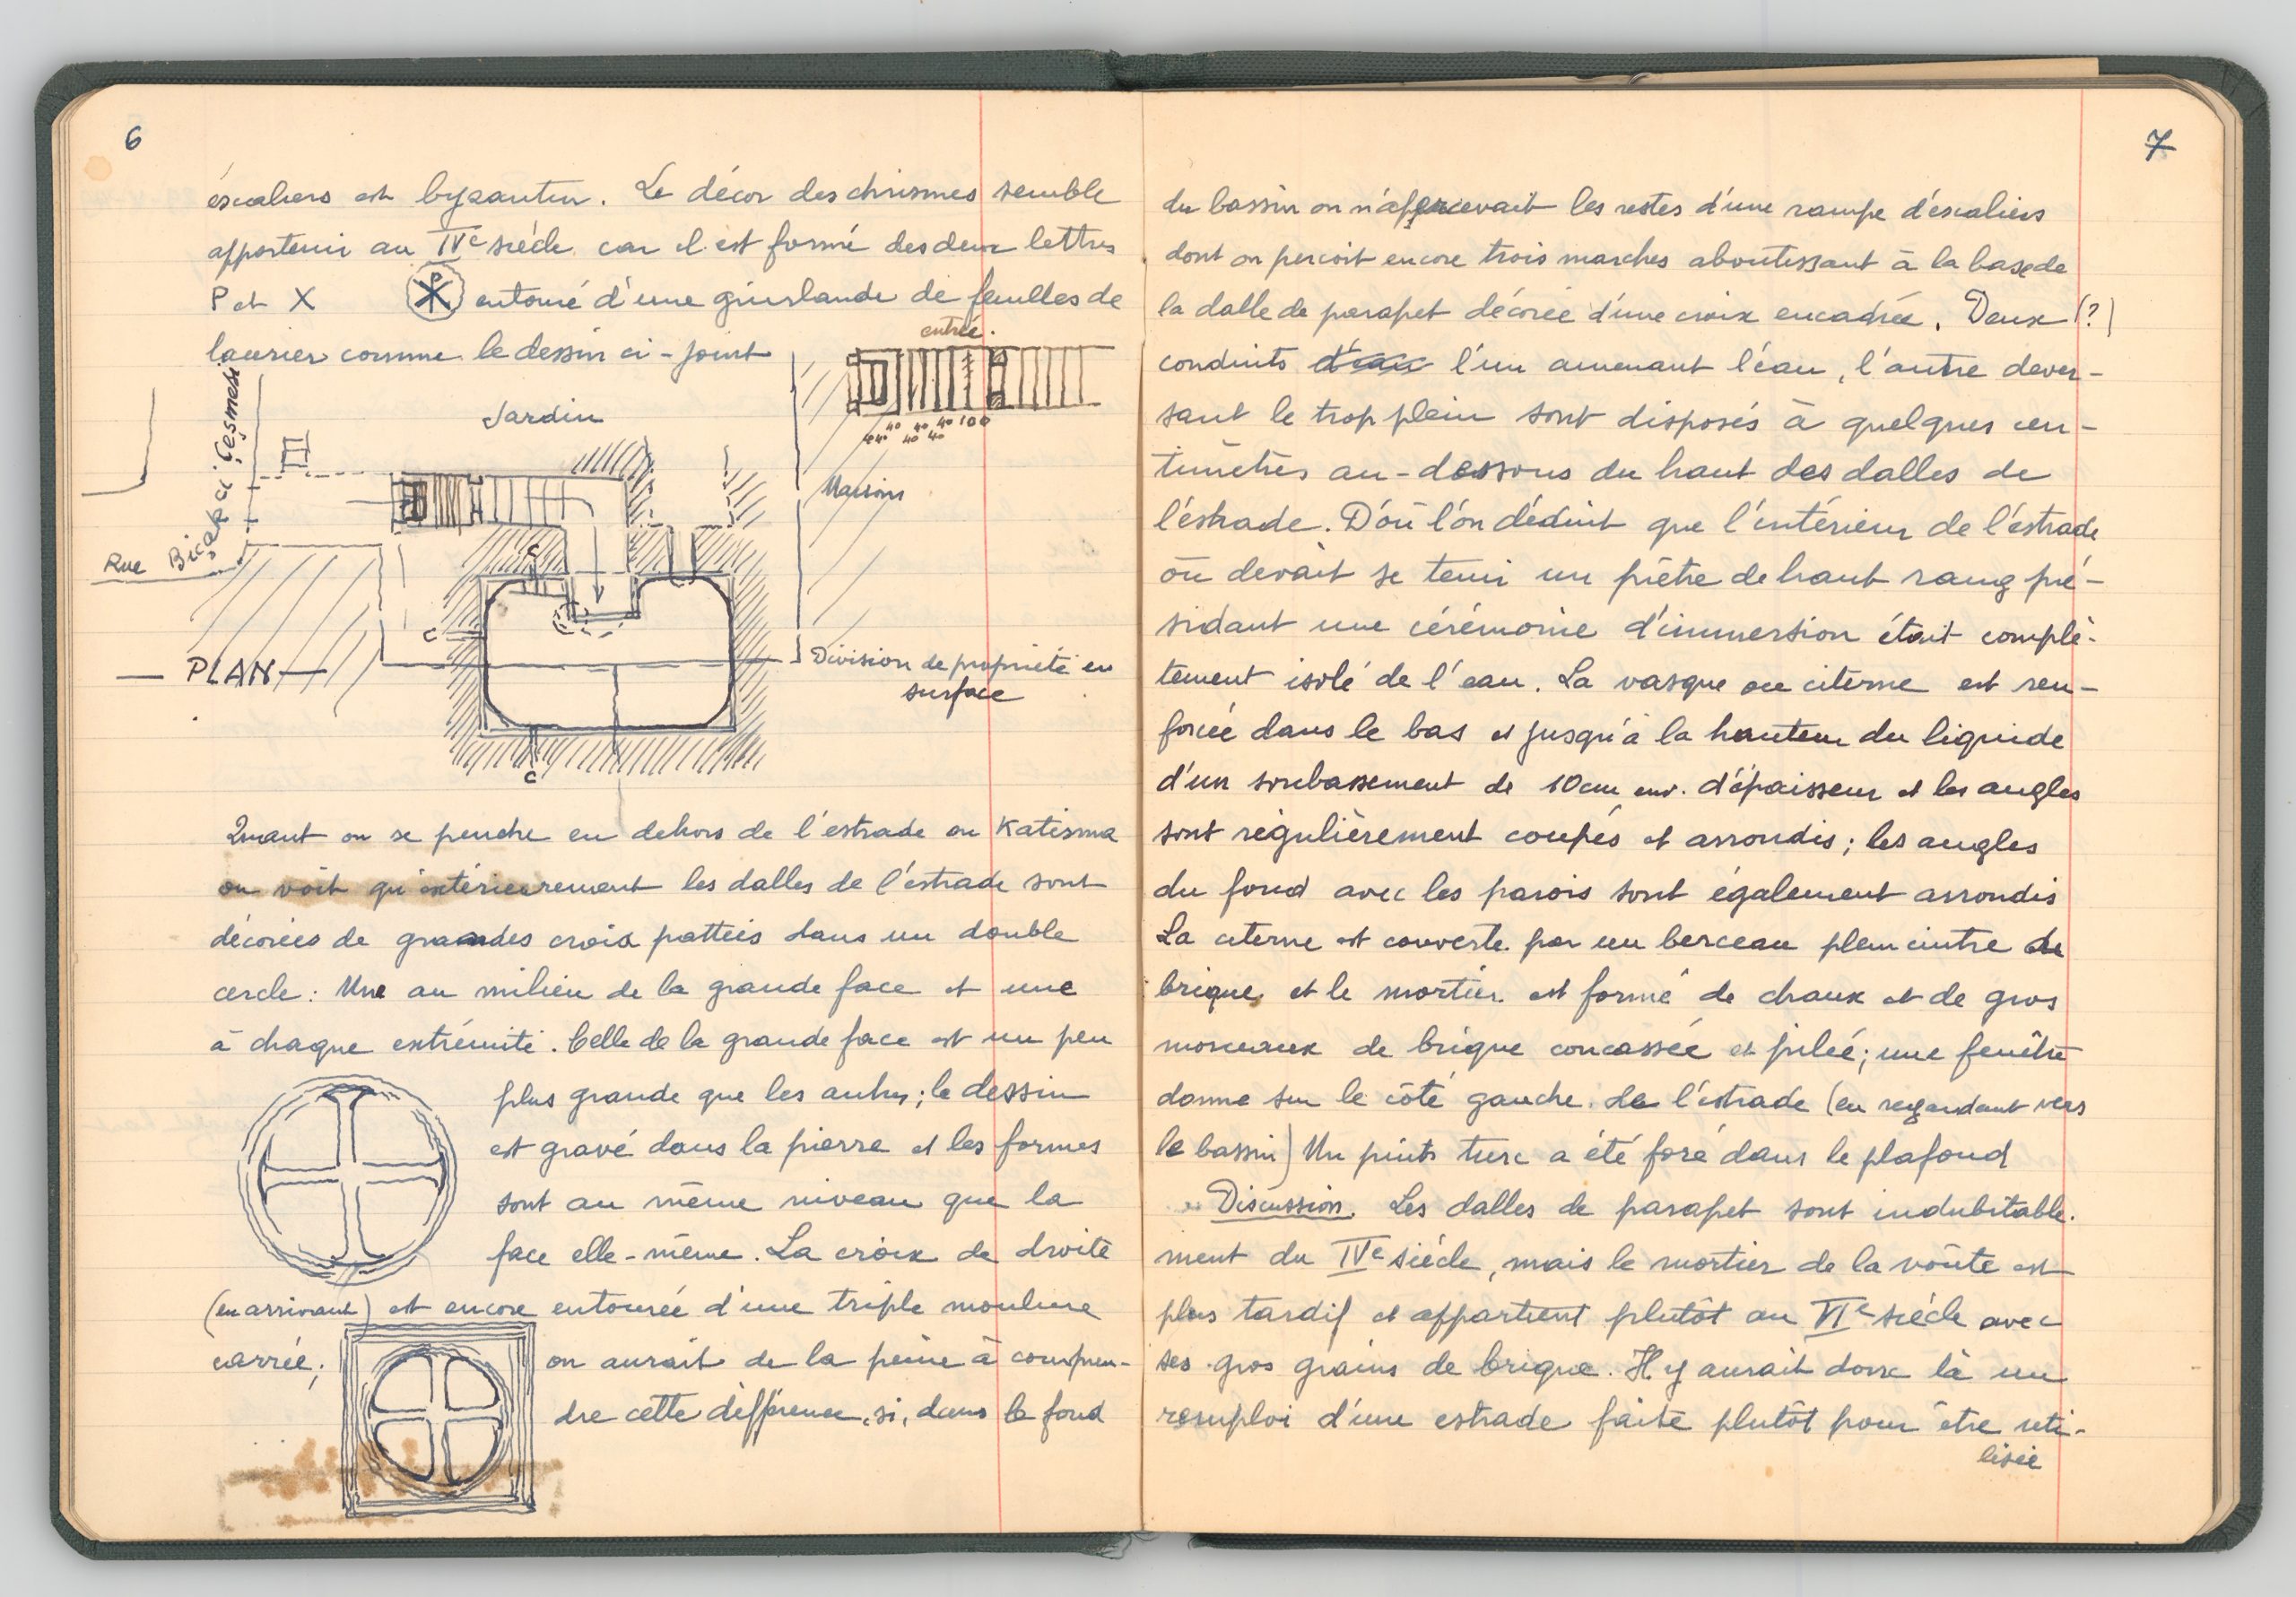 6
éscaliers est byzantin. Le décor des chrismes semble
appartenir au IVe siécle car il est formé des deux lettres
P et X entouré d'une giurlande de feuilles de
laurier comme le dessin ci-joint
entrée.
40 40 40 40 40 40 100
Jardin
Maisons
Rue Biçakçi Çesmesi
C
C
C
— PLAN —
Division de propriété en
surface
Quant on se penche en dehors de l'estrade ou Katisma
on voit qu'extérieurement les dalles de l'estrade sont
décorées de grandes croix pattées dans un double
cercle: Une au milieu de la grande face et une
à chaque extrémité. Celle de la grande face est un peu
plus grande que les autres; le dessin
est gravé dans la pierre et les formes
sont au même niveau que la
face elle-même. La croix de droite
(en arrivant) est encore entourée d'une triple moulure
carrée; on aurait de la peine à compren-
dre cette différence, si, dans le fond
7
du bassin on n'apercevait les restes d'une rampe d'éscaliers
dont on perçoit encore trois marches aboutissant à la base de
la dalle de parapet décorée d'une croix encadrée. Deux (?)
conduits d'eau l'un amenant l'eau, l'autre déver-
sant le trop plein sont disposés à quelques cen-
timètres au-dessous du haut des dalles de
l'éstrade. D'où l'on déduit que l'intérieur de l'éstrade
où devait se tenir un prêtre de haut rang pré-
sidant une cérémonie d'immersion était complè-
tement isolé de l'eau. La vasque ou citerne est ren-
forcée dans le bas et jusqu'à la hauteur du liquide
d'un soubassement de 10cm env. d'épaisseur et les angles
sont régulièrement coupés et arrondis; les angles
du fond avec les parois sont également arrondis
La citerne est couverte par un berceau plein cintre de
brique et le mortier est formé de chaux et de gros
morceaux de brique concassée et pilée; une fenêtre
donne sur le côté gauche de l'éstrade (en regardant vers
le bassin) Un puits turc a été foré dans le plafond
Discussion. Les dalles de parapet sont indubitable-
ment du IVe siécle, mais le mortier de la voûte est
plus tardif et appartient plutôt au VIe siécle avec
ses gros grains de brique. Il y aurait donc là un
remploi d'une estrade faite plutôt pour être uti-
lisée